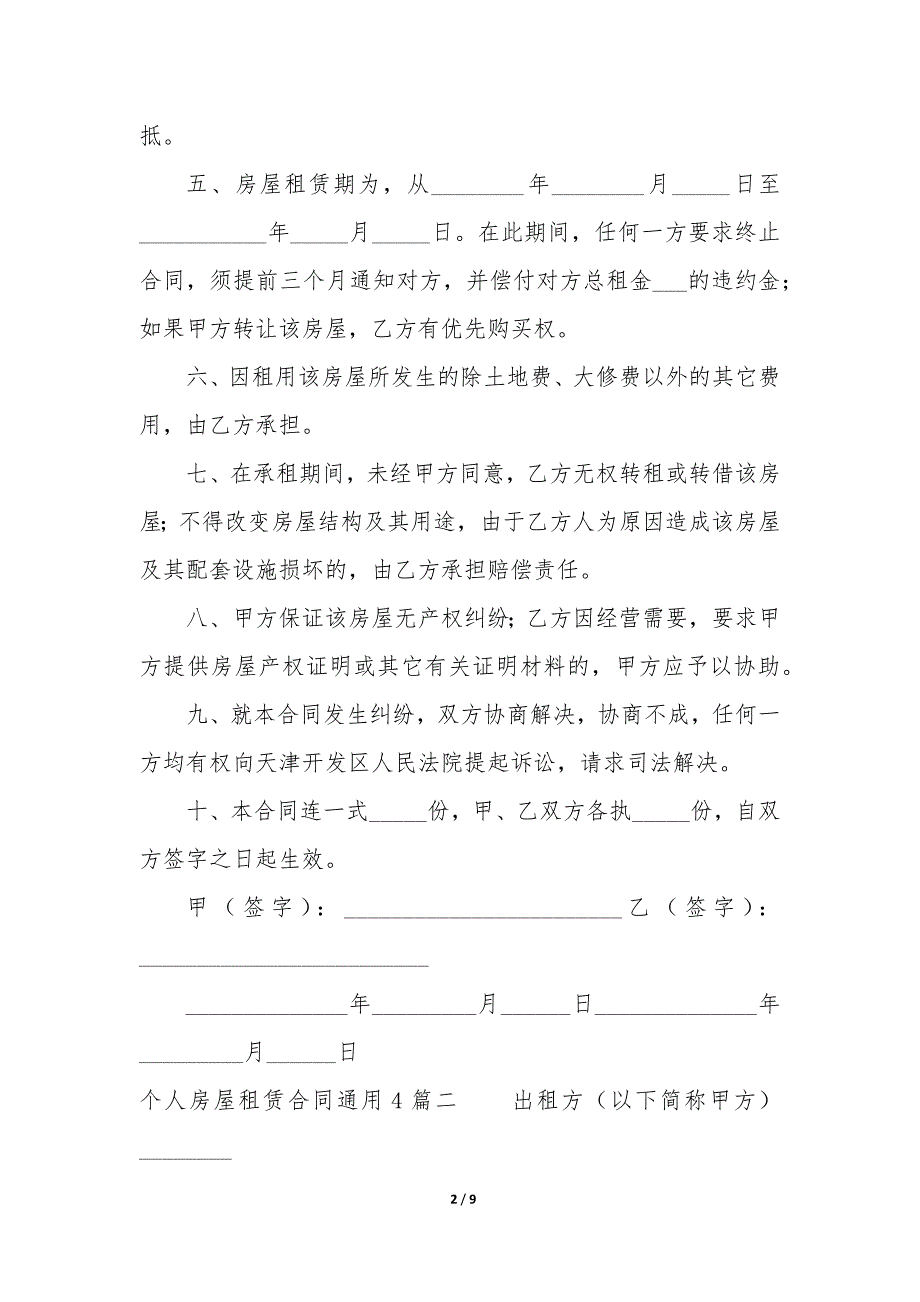 抵。
五、房屋租赁期为，从________年________月_____日至
___________年_____月_____日。在此期间，任何一方要求终止
合同，须提前三个月通知对方，并偿付对方总租金___的违约金；
如果甲方转让该房屋，乙方有优先购买权。
六、因租用该房屋所发生的除土地费、大修费以外的其它费
用，由乙方承担。
七、在承租期间，未经甲方同意，乙方无权转租或转借该房
屋；不得改变房屋结构及其用途，由于乙方人为原因造成该房屋
及其配套设施损坏的，由乙方承担赔偿责任。
八、甲方保证该房屋无产权纠纷；乙方因经营需要，要求甲
方提供房屋产权证明或其它有关证明材料的，甲方应予以协助。
九、就本合同发生纠纷，双方协商解决，协商不成，任何一
方均有权向天津开发区人民法院提起诉讼，请求司法解决。
十、本合同连一式_____份，甲、乙双方各执_____份，自双
方签字之日起生效。
甲（签字）：________________________乙（签字）：
_________________________
______________年_________月______日______________年
_________月______日
个人房屋租赁合同通用4篇二 出租方（以下简称甲方）
________
2 / 9